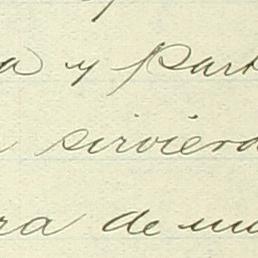 a y part
sirviera
ra de mu